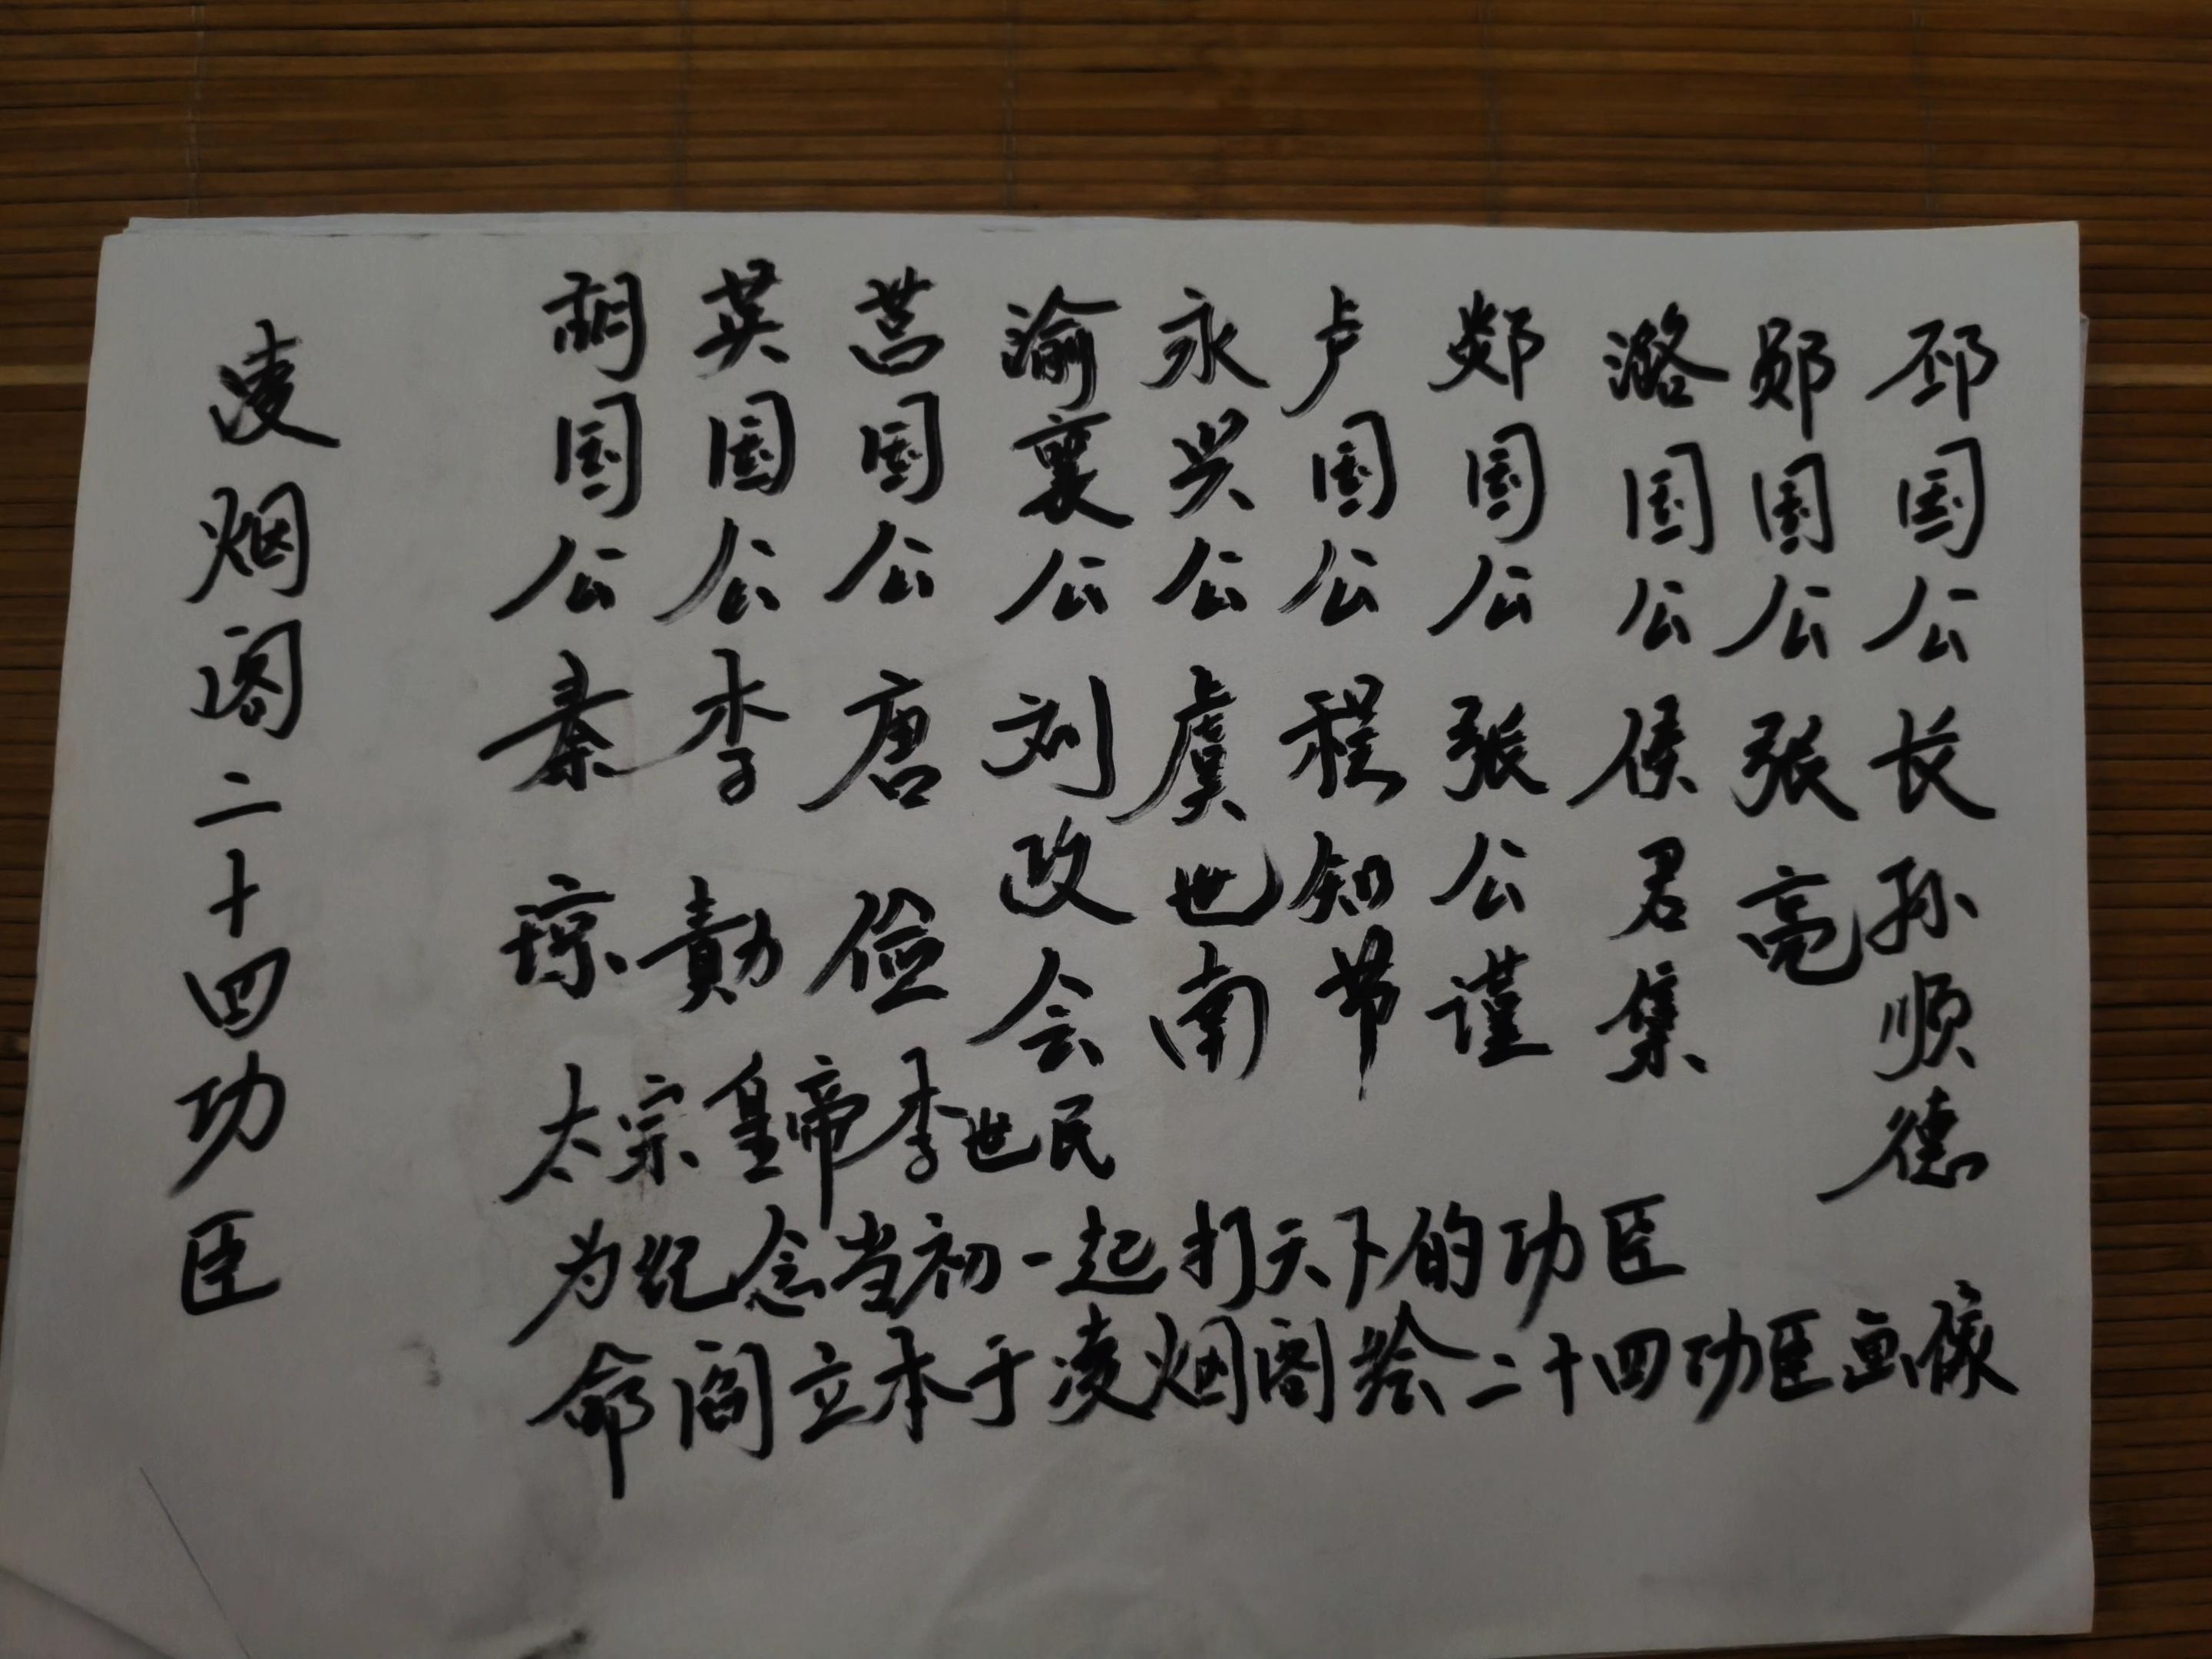 邳国公长孙顺德
郧国公张亮
潞国公侯君集
郯国公张公谨
卢国公程知节
永兴公虞世南
渝襄公刘政会
莒国公唐俭
英国公李勣
胡国公秦琼
太宗皇帝李世民
为纪念当初一起打天下的功臣
命阎立本于凌烟阁绘二十四功臣画像
凌烟阁二十四功臣